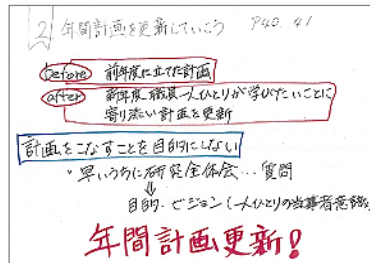 2 年間計画を更新していこう P40.41
before 前年度に立てた計画
after 新年度職員一人ひとりが学びたいことに
寄り添い計画を更新
計画をこなすことを目的にしない
・早いうちに研究全体会…質問
⇓
目的・ビジョン(一人ひとりの当事者意識)
年間計画更新!